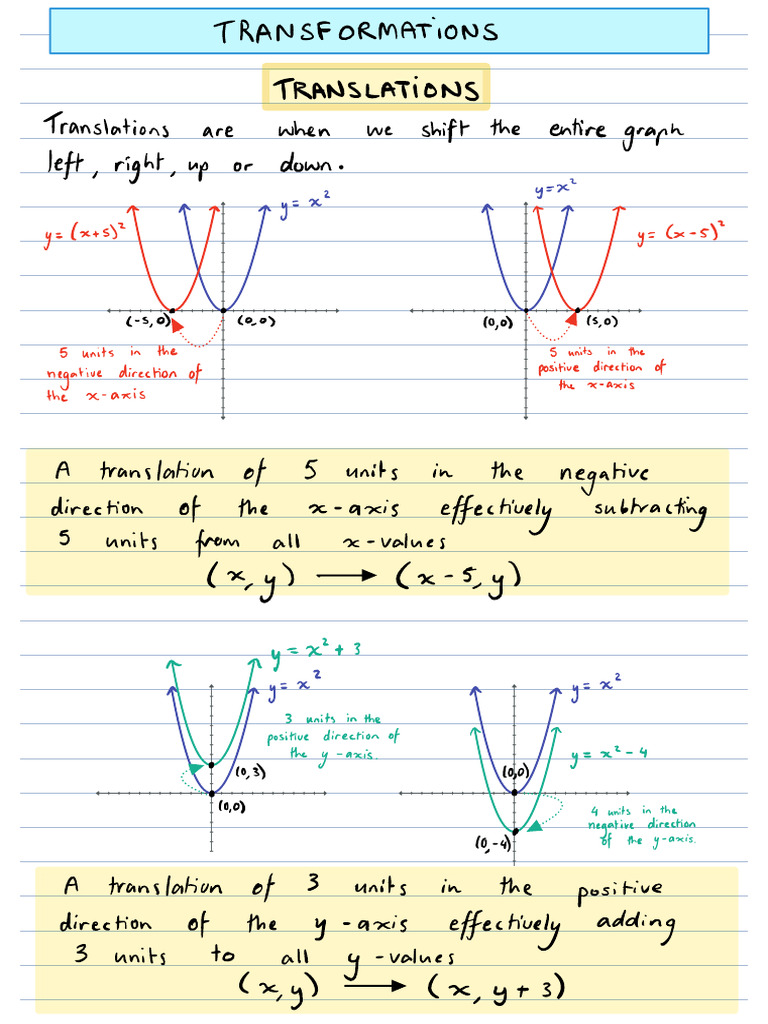 TRANSFORMATIONS
TRANSLATIONS
Translations are when we shift the entire graph
left, right, up or down.
y = x²
y = (x+5)²
(-5,0)
(0,0)
5 units in the
negative direction of
the x-axis
y=x²
y= (x-5)²
(0,0)
(5,0)
5 units in the
positive direction of
the x-axis
A translation of 5 units in the negative
direction of the x-axis effectively subtracting
5 units from all x-values
(x, y) → (x - 5, y)
y = x² + 3
y = x²
3 units in the
positive direction of
the y-axis.
(0,3)
(0,0)
y = x²
(0,0)
y = x² - 4
4 units in the
negative direction
of the y-axis.
(0,-4)
A translation of 3 units in the positive
direction of the y-axis effectively adding
3 units to all y-values
(x, y) → (x, y + 3)